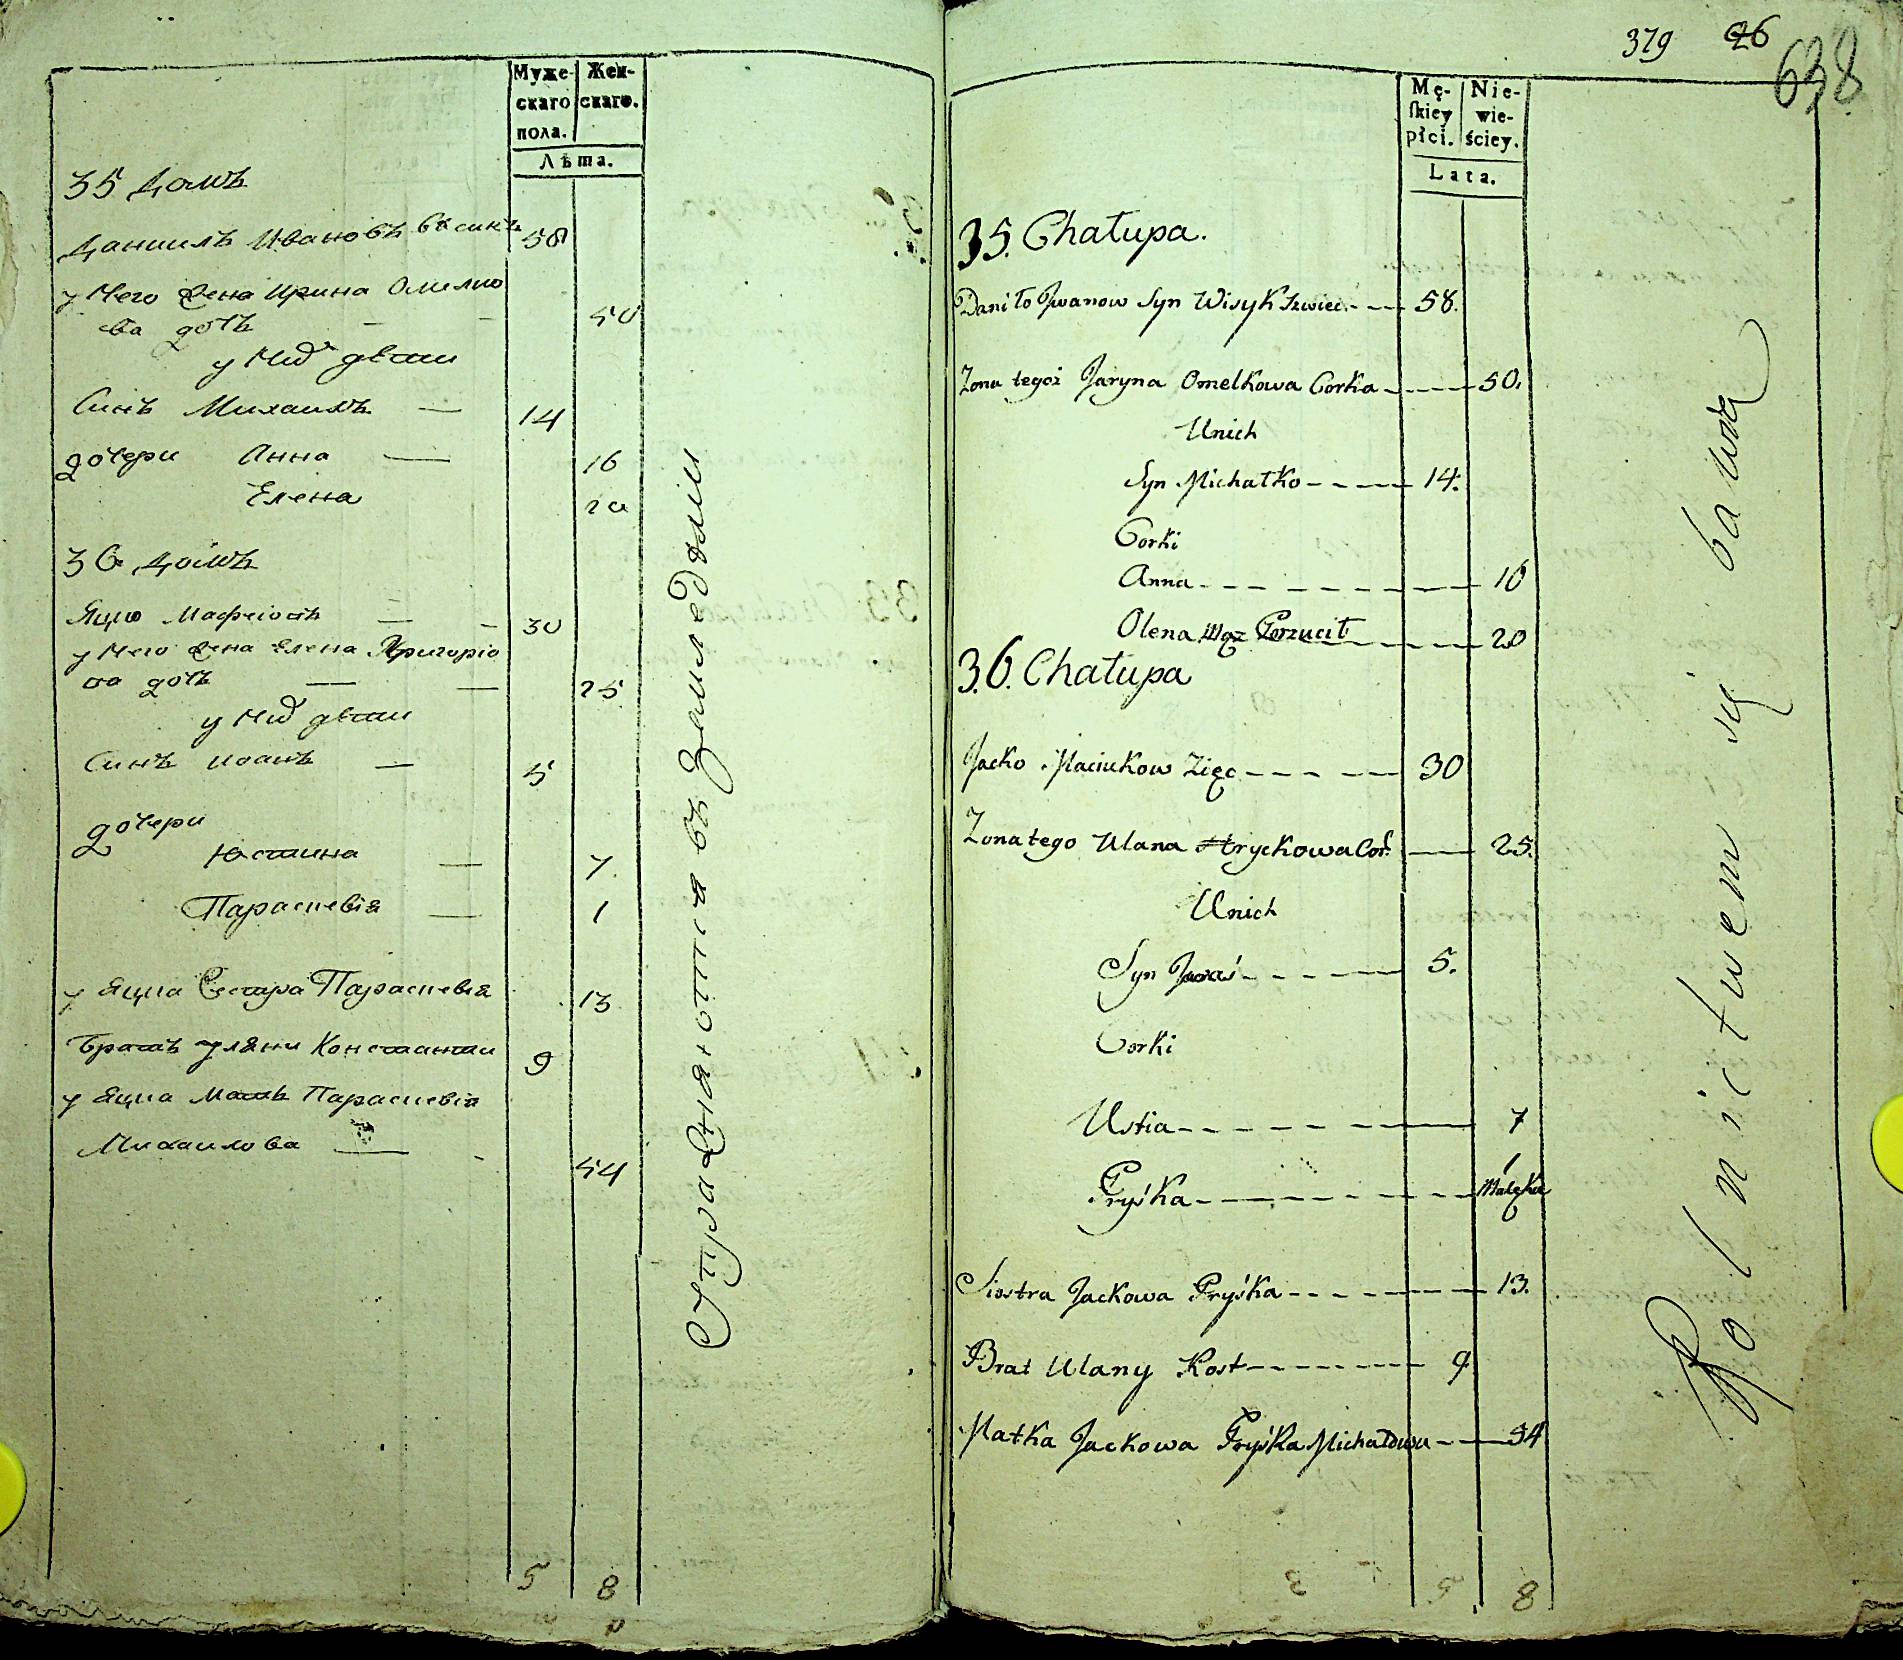 Муже-
скаго
пола.
Жен-
скаго.
Лѣта.
35 Домъ
Даниилъ Ивановъ Висикъ 58
у Него Жена Ирина Омелко
ва дочь — - 50
у Них дѣти
Синъ Михаилъ — 14
дочери Анна — 16
Елена 20
36 Домъ
Яцко — - 30
у Него Жена Елена Григорїо
ва дочь — — 25
у Них дѣти
Синъ Иоанъ — 5
дочери
Юстина — 7.
Параскевїя — 1
у Яцка Сестра Параскевїя 13
Братъ Уляни Константи 9
у Яцка Мать Параскевїя
Михаилова — - 54
5 8
Упражняются въ Земледѣлии
379 26
638
Mę-
ſkiey
płci.
Nie-
wie-
ściey.
Lata.
35. Chałupa.
Daniło Jwanow Syn Wisyk Szwiec - - - 58.
Zona tegoż Jaryna Omelkowa Corka - - - - 50.
Unich
Syn Michałko - - - - 14.
Corki
Anna - - - - - - - 16
Olena Mąz Porzucił - - - - 20
36. Chałupa
Jacko Maciukow Zięc - - - - - 30
Zona tego Ulana Hryckowa Cor. — 25.
Unich
Syn - - - - 5.
Corki
Ustia - - - - - - 7
1
Pryśka - - - - - - Maleka
Siostra Jackowa Pryśka - - - - - - - 13.
Brat Ulany Kost - - - - - - - - 9
Matka Jackowa Pryśka Michałowa - - - 54
5 8
Rolnictwem się bawią